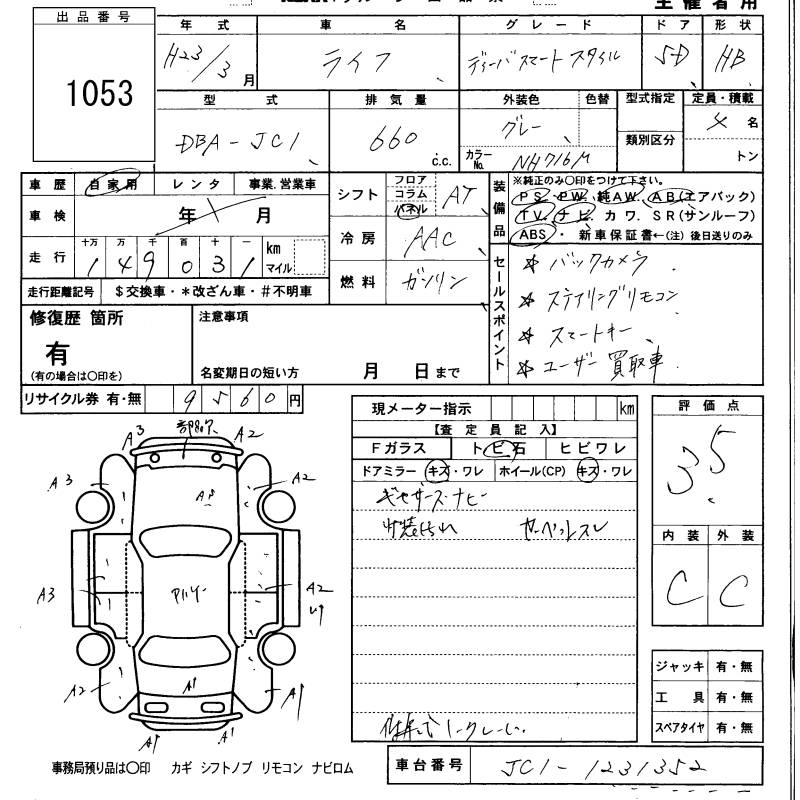 主催者用
出品番号
1053
年式 車名 グレード ドア 形状
H23/3月 ライフ ディーバスマートスタイル 5D HB
型式 排気量 外装色 色替 型式指定 定員・積載
DBA-JC1 660 c.c. グレー 類別区分 4名
カラーNo. NH716M トン
車歴 自家用 レンタ 事業.営業車
車検 年 月
走行 十万 万 千 百 十 一 km マイル
1 4 9 0 3 1
走行距離記号 $交換車・*改ざん車・#不明車
シフト フロア コラム パネル AT
冷房 AAC
燃料 ガソリン
装備品 ※純正のみ〇印をつけて下さい。
PS・PW・純AW・AB(エアバック)
TV・ナビ・カワ・SR(サンルーフ)
ABS・新車保証書←(注)後日送りのみ
セールスポイント
☆ バックカメラ
☆ ステアリングリモコン
☆ スマートキー
☆ ユーザー買取車
修復歴 箇所
有
(有の場合は〇印を)
注意事項
名変期日の短い方 月 日まで
リサイクル券 有・無 9560円
現メーター指示 km
【査定員記入】
Fガラス トビ石 ヒビワレ
ドアミラー キズ・ワレ ホイール(CP) キズ・ワレ
評価点
3.5
内装 外装
C C
A3 A2
A3 A2
A3 A2
A2 A1
A1
A1 A1
ジャッキ 有・無
工具 有・無
スペアタイヤ 有・無
事務局預り品は〇印 カギ シフトノブ リモコン ナビロム
車台番号 JC1-1231352